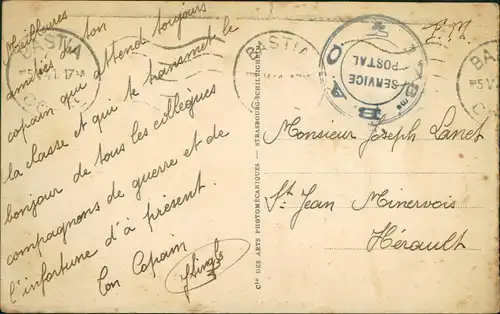 Meilleures
amitiés de ton
copain que attend toujours
la classe et qui te transmet le
bonjour de tous les collègues
compagnons de guerre et de
l'infortune d'à présent.
Ton Copain
BASTIA
BASTIA
BA
SERVICE
POSTAL
F.M.
Monsieur Joseph Lanet
St Jean Minervois
Hérault
Cie DES ARTS PHOTOMÉCANIQUES — STRASBOURG-SCHILTIGHEIM